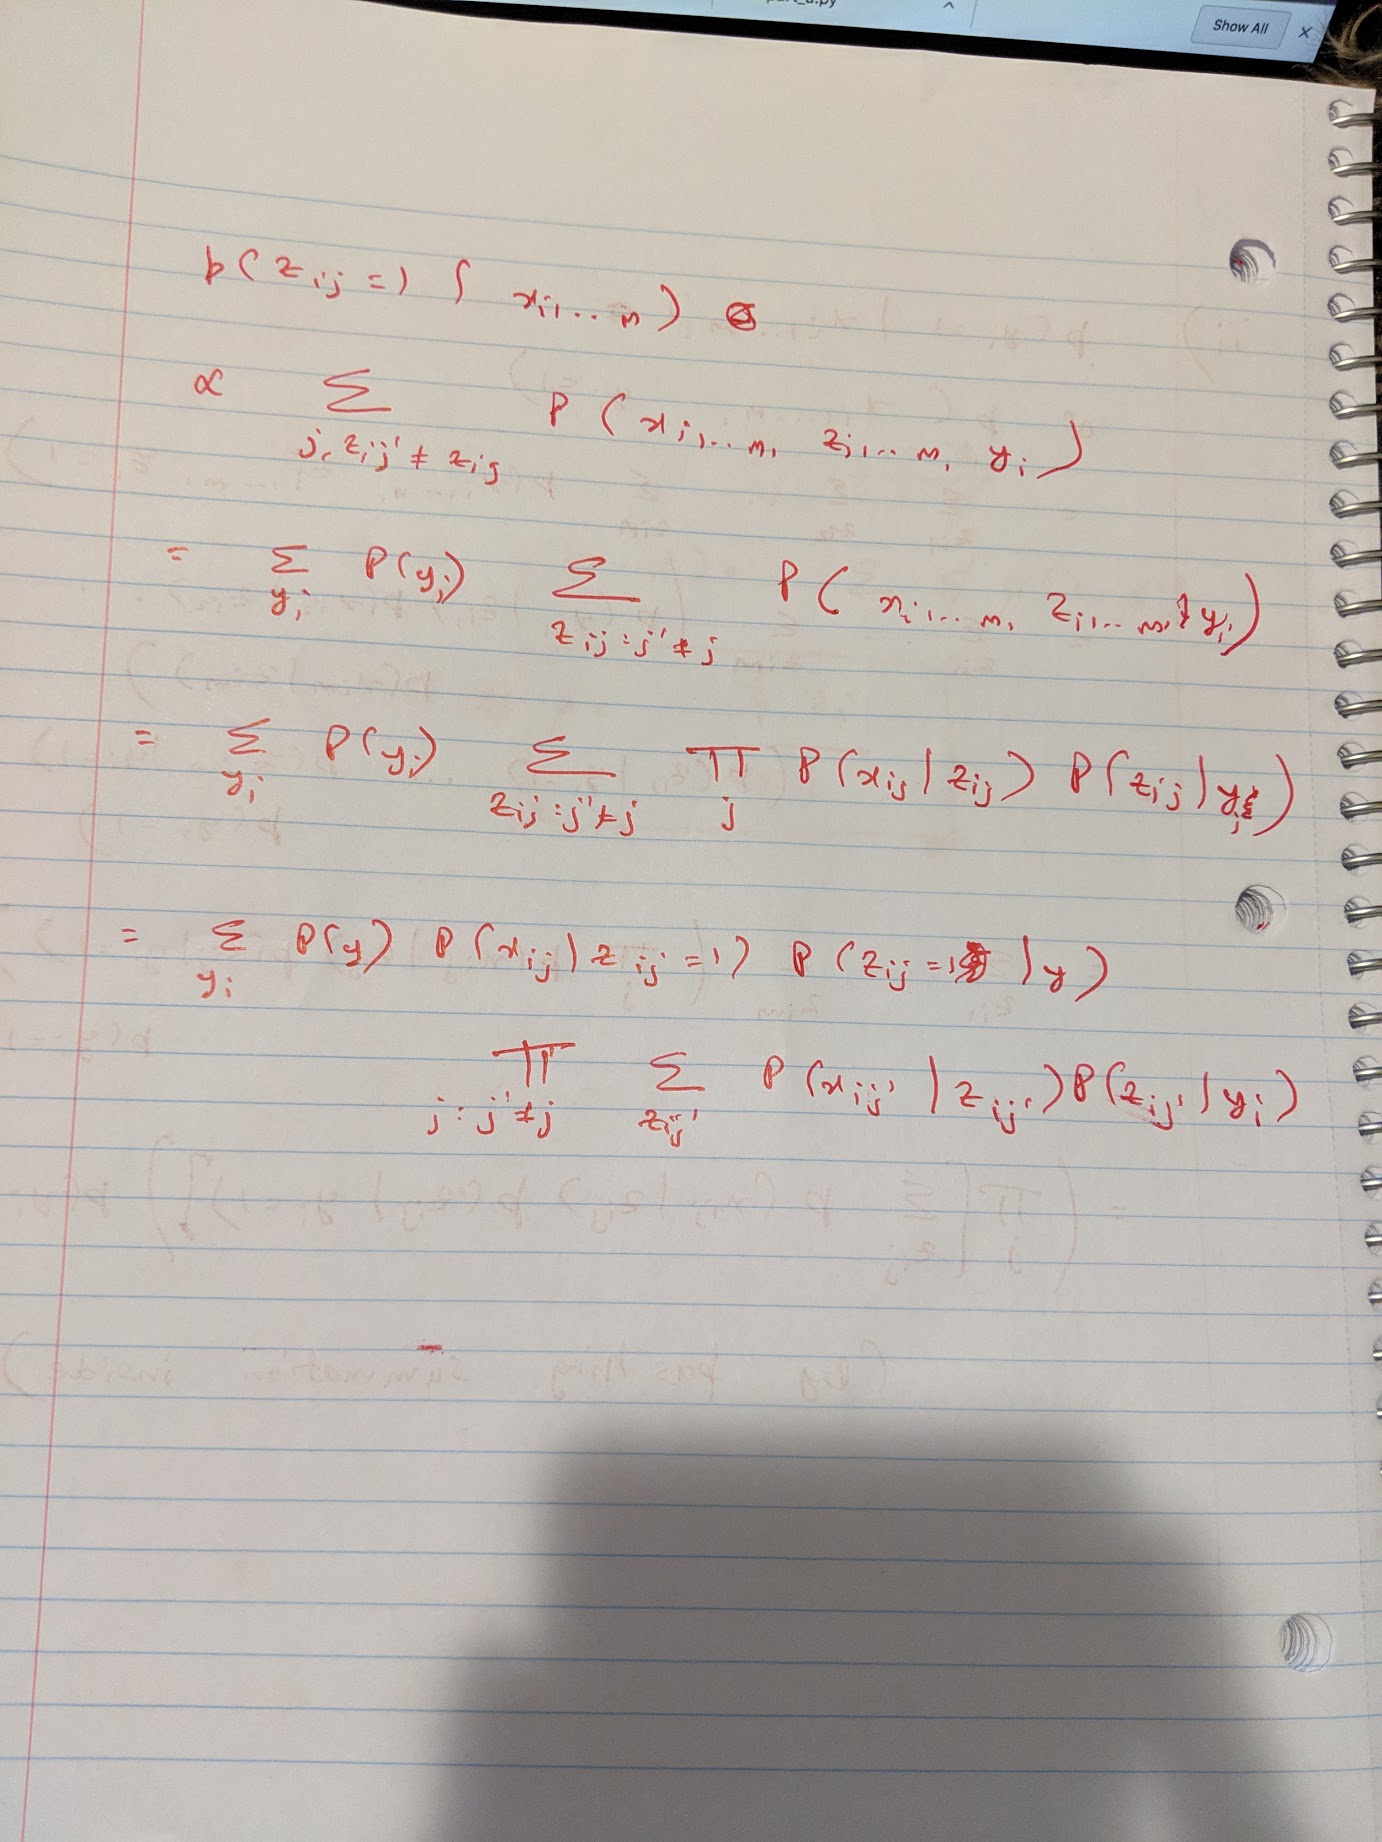 Show All ×
p(z_{ij} = 1 | x_{i1...m})
∝ Σ_{j, z_{ij'} ≠ z_{ij}} P(x_{i1...m}, z_{i1...m}, y_i)
= Σ_{y_i} P(y_i) Σ_{z_{ij} : j' ≠ j} P(x_{i1...m}, z_{i1...m} | y_i)
= Σ_{y_i} P(y_i) Σ_{z_{ij} : j' ≠ j} Π_j P(x_{ij} | z_{ij}) P(z_{ij} | y_i)
= Σ_{y_i} P(y) P(x_{ij} | z_{ij} = 1) P(z_{ij} = 1 | y)
Π_{j : j' ≠ j} Σ_{z_{ij'}} P(x_{ij'} | z_{ij'}) P(z_{ij'} | y_i)